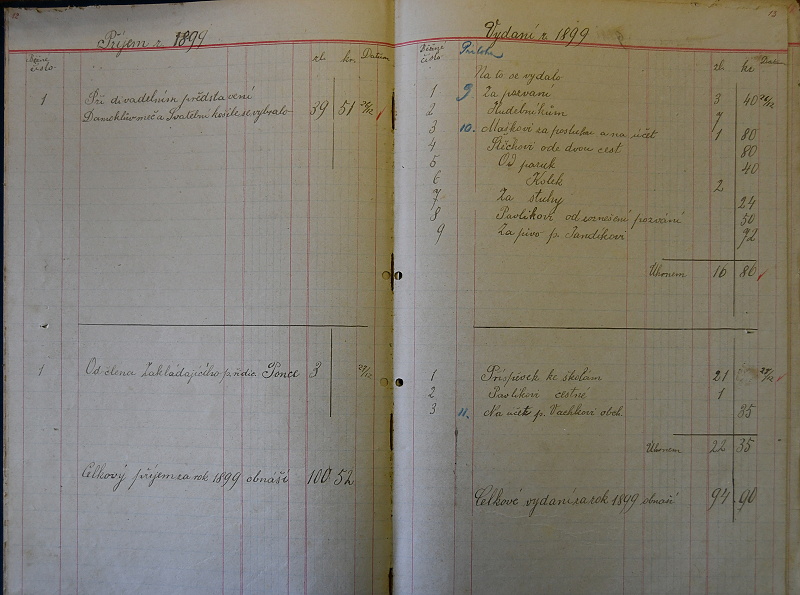 12
Příjem r. 1899
Běžné číslo
zl. kr. Datum
1 Při divadelním představení
Damoklův meč a Svatební košile se vybralo 39 51 26/12
1 Od člena Zakládajícího p. řídic. Ponce 3 27/12
Celkový příjem za rok 1899 obnáší 100 52
13
Vydaní r. 1899
Běžné číslo Příloha
zl. kr. Datum
Na to se vydalo
1 9. Za pozvaní 3 40 26/12
2 Hudebníkům 7
3 10. Maškovi za posluhu a na účet 1 80
4 Stěchovi ode dvou cest 80
5 Od paruk 40
6 Kolek 2
7 Za stuhy 24
8 Pavlíkovi od roznešení pozvání 50
9 Za pivo p. Jandíkovi 92
Uhrnem 16 86
1 Príspěvek ke školám 21 28/12
2 Pavlíkovi cestné 1
3 11. Na účet p. Vachkovi obch. 35
Uhrnem 22 35
Celkové vydaní za rok 1899 obnáší 94 90